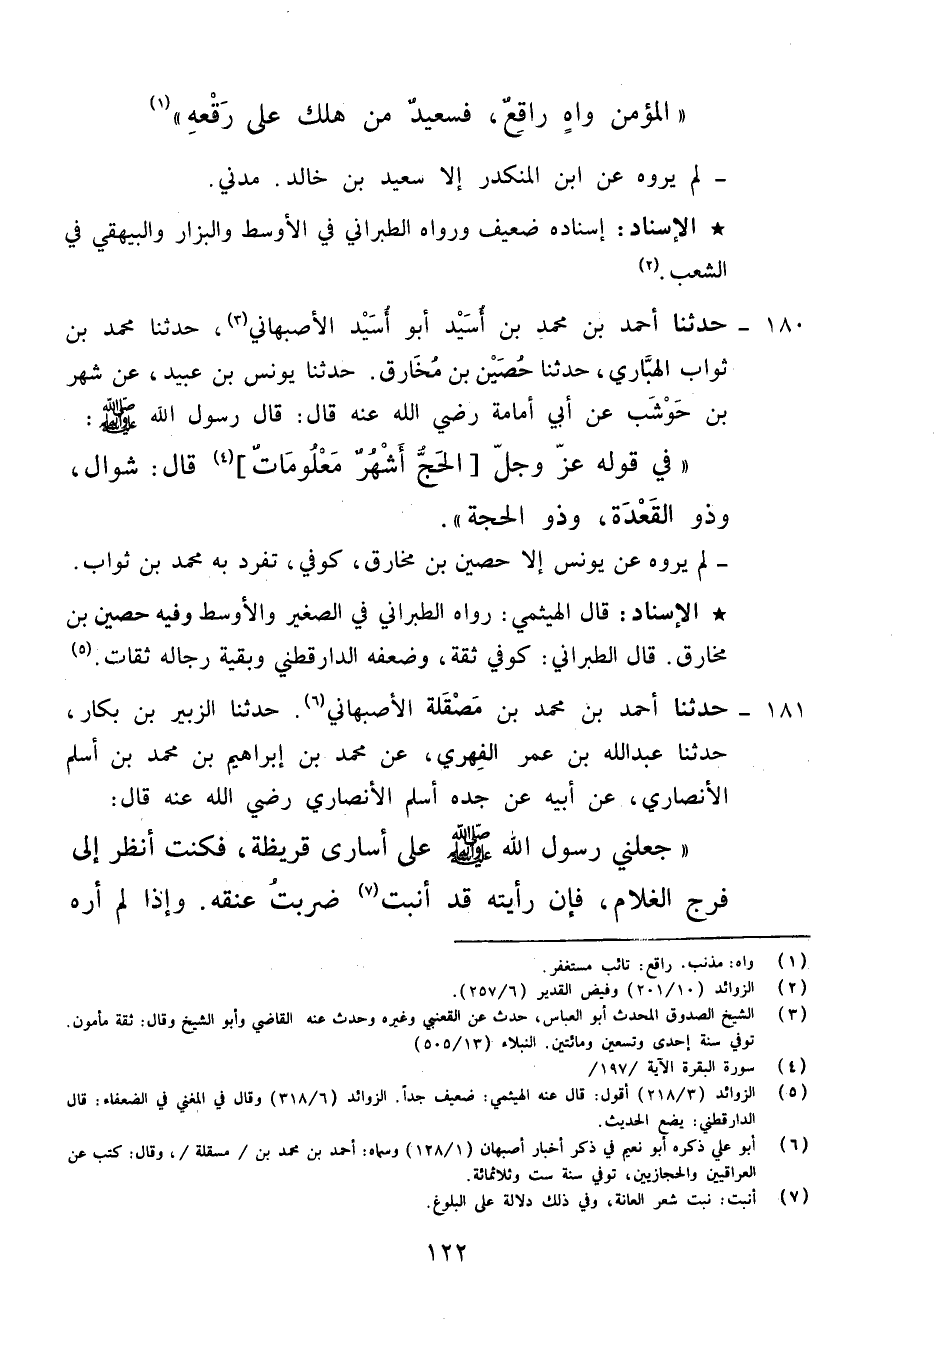 « المؤمن واهٍ راقعٌ، فسعيدٌ من هلك على رَقْعهِ»(١)
ـ لم يروه عن ابن المنكدر إلا سعيد بن خالد. مدني.
★ الإسناد: إسناده ضعيف ورواه الطبراني في الأوسط والبزار والبيهقي في
الشعب.(٢)
١٨٠ ـ حدثنا أحمد بن محمد بن أُسَيْد أبو أُسَيْد الأصبهاني(٣)، حدثنا محمد بن
ثواب الهبَّاري، حدثنا حُصَيْن بن مُخَارق. حدثنا يونس بن عبيد، عن شهر
بن حَوْشَب عن أبي أمامة رضي الله عنه قال: قال رسول الله ﷺ :
« في قوله عزّ وجلّ [الحَجُّ أَشْهُرٌ مَعْلُومَاتٌ](٤) قال: شوال،
وذو القَعْدَة، وذو الحجة».
ـ لم يروه عن يونس إلا حصين بن مخارق، كوفي، تفرد به محمد بن ثواب.
★ الإسناد: قال الهيثمي: رواه الطبراني في الصغير والأوسط وفيه حصين بن
مخارق. قال الطبراني: كوفي ثقة، وضعفه الدارقطني وبقية رجاله ثقات.(٥)
١٨١ ـ حدثنا أحمد بن محمد بن مَصْقَلة الأصبهاني(٦). حدثنا الزبير بن بكار،
حدثنا عبدالله بن عمر الفِهري، عن محمد بن إبراهيم بن محمد بن أسلم
الأنصاري، عن أبيه عن جده أسلم الأنصاري رضي الله عنه قال:
« جعلني رسول الله ﷺ على أسارى قريظة، فكنت أنظر إلى
فرج الغلام، فإن رأيته قد أنبت(٧) ضربتُ عنقه. وإذا لم أره
(١) واه: مذنب. راقع: تائب مستغفر.
(٢) الزوائد (٢٠١/١٠) وفيض القدير (٢٥٧/٦).
(٣) الشيخ الصدوق المحدث أبو العباس، حدث عن القعنبي وغيره وحدث عنه القاضي وأبو الشيخ وقال: ثقة مأمون.
توفي سنة إحدى وتسعين ومائتين. النبلاء (٥٠٥/١٣)
(٤) سورة البقرة الآية /١٩٧/
(٥) الزوائد (٢١٨/٣) أقول: قال عنه الهيثمي: ضعيف جداً. الزوائد (٣١٨/٦) وقال في المغني في الضعفاء: قال
الدارقطني: يضع الحديث.
(٦) أبو علي ذكره أبو نعيم في ذكر أخبار أصبهان (١٢٨/١) وسماه: أحمد بن محمد بن / مسقلة /، وقال: كتب عن
العراقيين والحجازيين، توفي سنة ست وثلاثمائة.
(٧) أنبت: نبت شعر العانة، وفي ذلك دلالة على البلوغ.
١٢٢